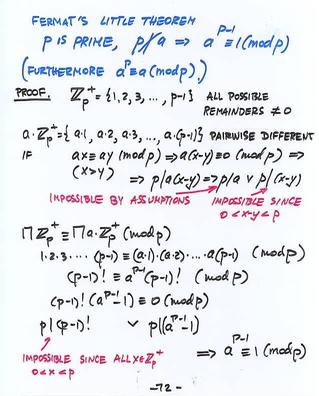 FERMAT'S LITTLE THEOREM
p IS PRIME, p∤a => a^{p-1} ≡ 1 (mod p)
(FURTHERMORE a^p ≡ a (mod p).)
PROOF. ℤ_p^+ = {1,2,3, ..., p-1} ALL POSSIBLE
REMAINDERS ≠ 0
a·ℤ_p^+ = {a·1, a·2, a·3, ..., a·(p-1)} PAIRWISE DIFFERENT
IF ax ≡ ay (mod p) => a(x-y) ≡ 0 (mod p) =>
(x>y) => p|a(x-y) => p|a ∨ p|(x-y)
IMPOSSIBLE BY ASSUMPTIONS IMPOSSIBLE SINCE
0<x-y<p
Πℤ_p^+ ≡ Πa·ℤ_p^+ (mod p)
1·2·3· ... ·(p-1) ≡ (a·1)·(a·2)· ... ·a(p-1) (mod p)
(p-1)! ≡ a^{p-1}(p-1)! (mod p)
(p-1)! (a^{p-1}-1) ≡ 0 (mod p)
p|(p-1)! ∨ p|(a^{p-1}-1)
IMPOSSIBLE SINCE ALL x∈ℤ_p^+ => a^{p-1} ≡ 1 (mod p)
0<x<p
-72-